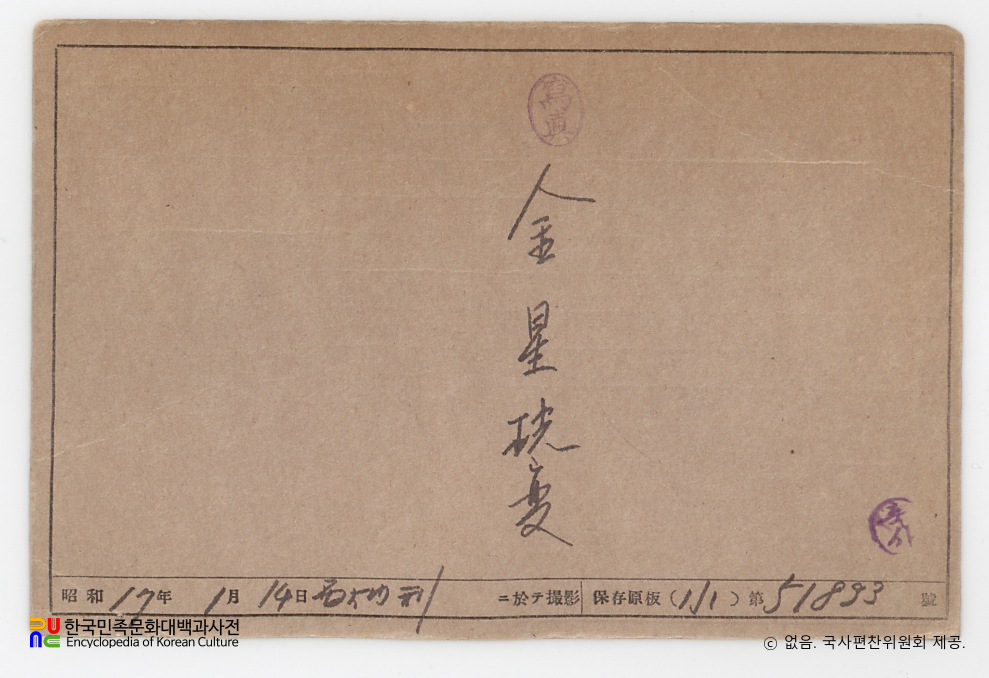 寫眞
金星
昭和17年 1月 14日 西大門刑 ニ於テ撮影 保存原板 (1/1) 第 51893 號
한국민족문화대백과사전
Encyclopedia of Korean Culture
ⓒ 없음. 국사편찬위원회 제공.